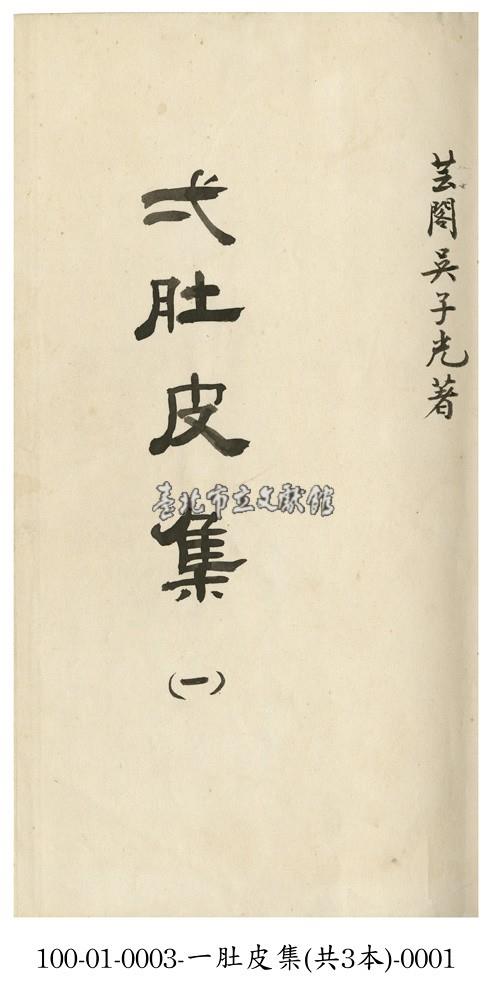 芸閣吳子光著
弌肚皮集(一)
臺北市立文獻館
100-01-0003-一肚皮集(共3本)-0001